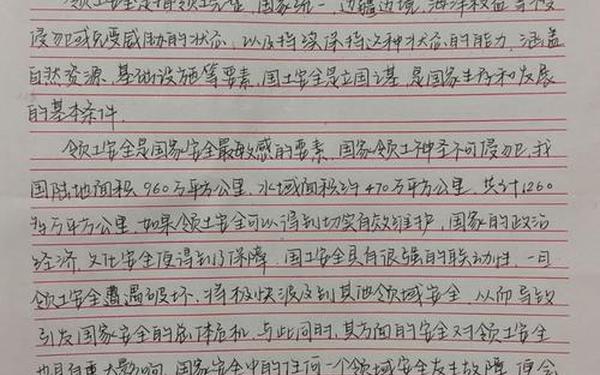 领土安全是指领土完整、国家统一、边疆边境、海洋权益等不受
侵犯或免受威胁的状态,以及持续保持这种状态的能力,涵盖
自然资源、基础设施等要素,国土安全是立国之基,是国家生存和发展
的基本条件.
领土安全是国家安全最敏感的要素,国家领土神圣不可侵犯,我
国陆地面积960万平方公里,水域面积约470万平方公里,共计1260
将万平方公里,如果领土安全可以得到切实有效维护,国家的政治
经济,文化安全便得到了保障,国土安全具有很强的联动性,一旦
领土安全遭遇破坏,将极快波及到其他领域安全,从而导致
引发国家安全的总体危机,与此同时,其方面的安全对领土安全
也具有重大影响,国家安全中的任何一个领域安全发生故障,便会